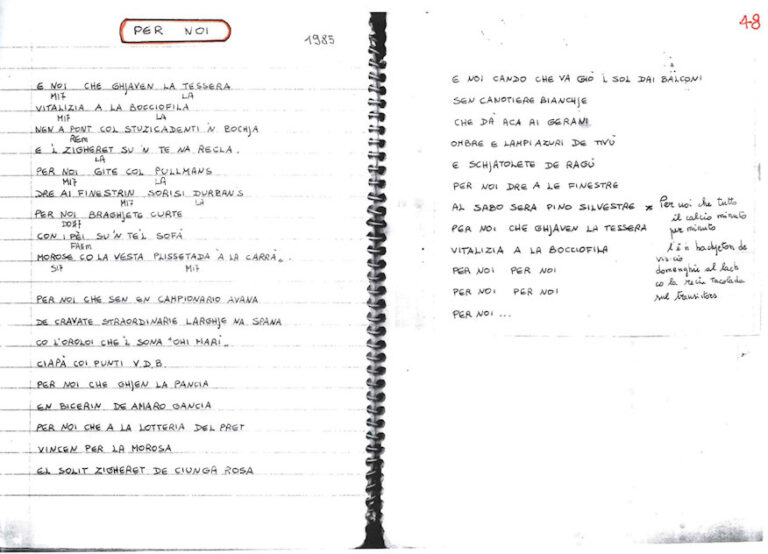 PER NOI
1985
E NOI CHE GHJAVEN LA TESSERA
MI7 LA
VITALIZIA A LA BOCCIOFILA
MI7 LA
NEN A PONT COL STUZICADENTI 'N BOCHJA
REm
E 'L ZIGHERET SU 'N TE NA RECLA.
LA
PER NOI GITE COL PULLMANS
MI7 LA
DRE AI FINESTRIN SORISI DURBANS
MI7 LA
PER NOI BRAGHJETE CURTE
DO#7
CON I PÈI SU'N TE'L SOFÀ
FA#m
MOROSE CO LA VESTA PLISSETADA "À LA CARRÀ".
SI7 MI7
PER NOI CHE SEN EN CAMPIONARIO AVANA
DE CRAVATE STRAORDINARIE LARGHJE NA SPANA
CO L'OROLOI CHE 'L SONA "OHI MARÌ"
CIAPÀ COI PUNTI V.D.B.
PER NOI CHE GHJEN LA PANCIA
EN BICERIN DE AMARO GANCIA
PER NOI CHE A LA LOTTERIA DEL PRET
VINCEN PER LA MOROSA
EL SOLIT ZIGHERET DE CIUNGA ROSA
48
E NOI CANDO CHE VA GIÒ 'L SOL DAI BALCONI
SEN CANOTIERE BIANCHJE
CHE DÀ ACA AI GERANI
OMBRE E LAMPI AZURI DE TIVÙ
E SCHJATOLETE DE RAGÙ
PER NOI DRE A LE FINESTRE
AL SABO SERA PINO SILVESTRE *
PER NOI CHE GHJAVEN LA TESSERA
VITALIZIA A LA BOCCIOFILA
PER NOI PER NOI
PER NOI PER NOI
PER NOI ...
* Per noi che tutto
il calcio minuto
per minuto
l'è 'n bachjeton de
vis-cio
domenghie al lach
co la recia tacolada
sul transistors